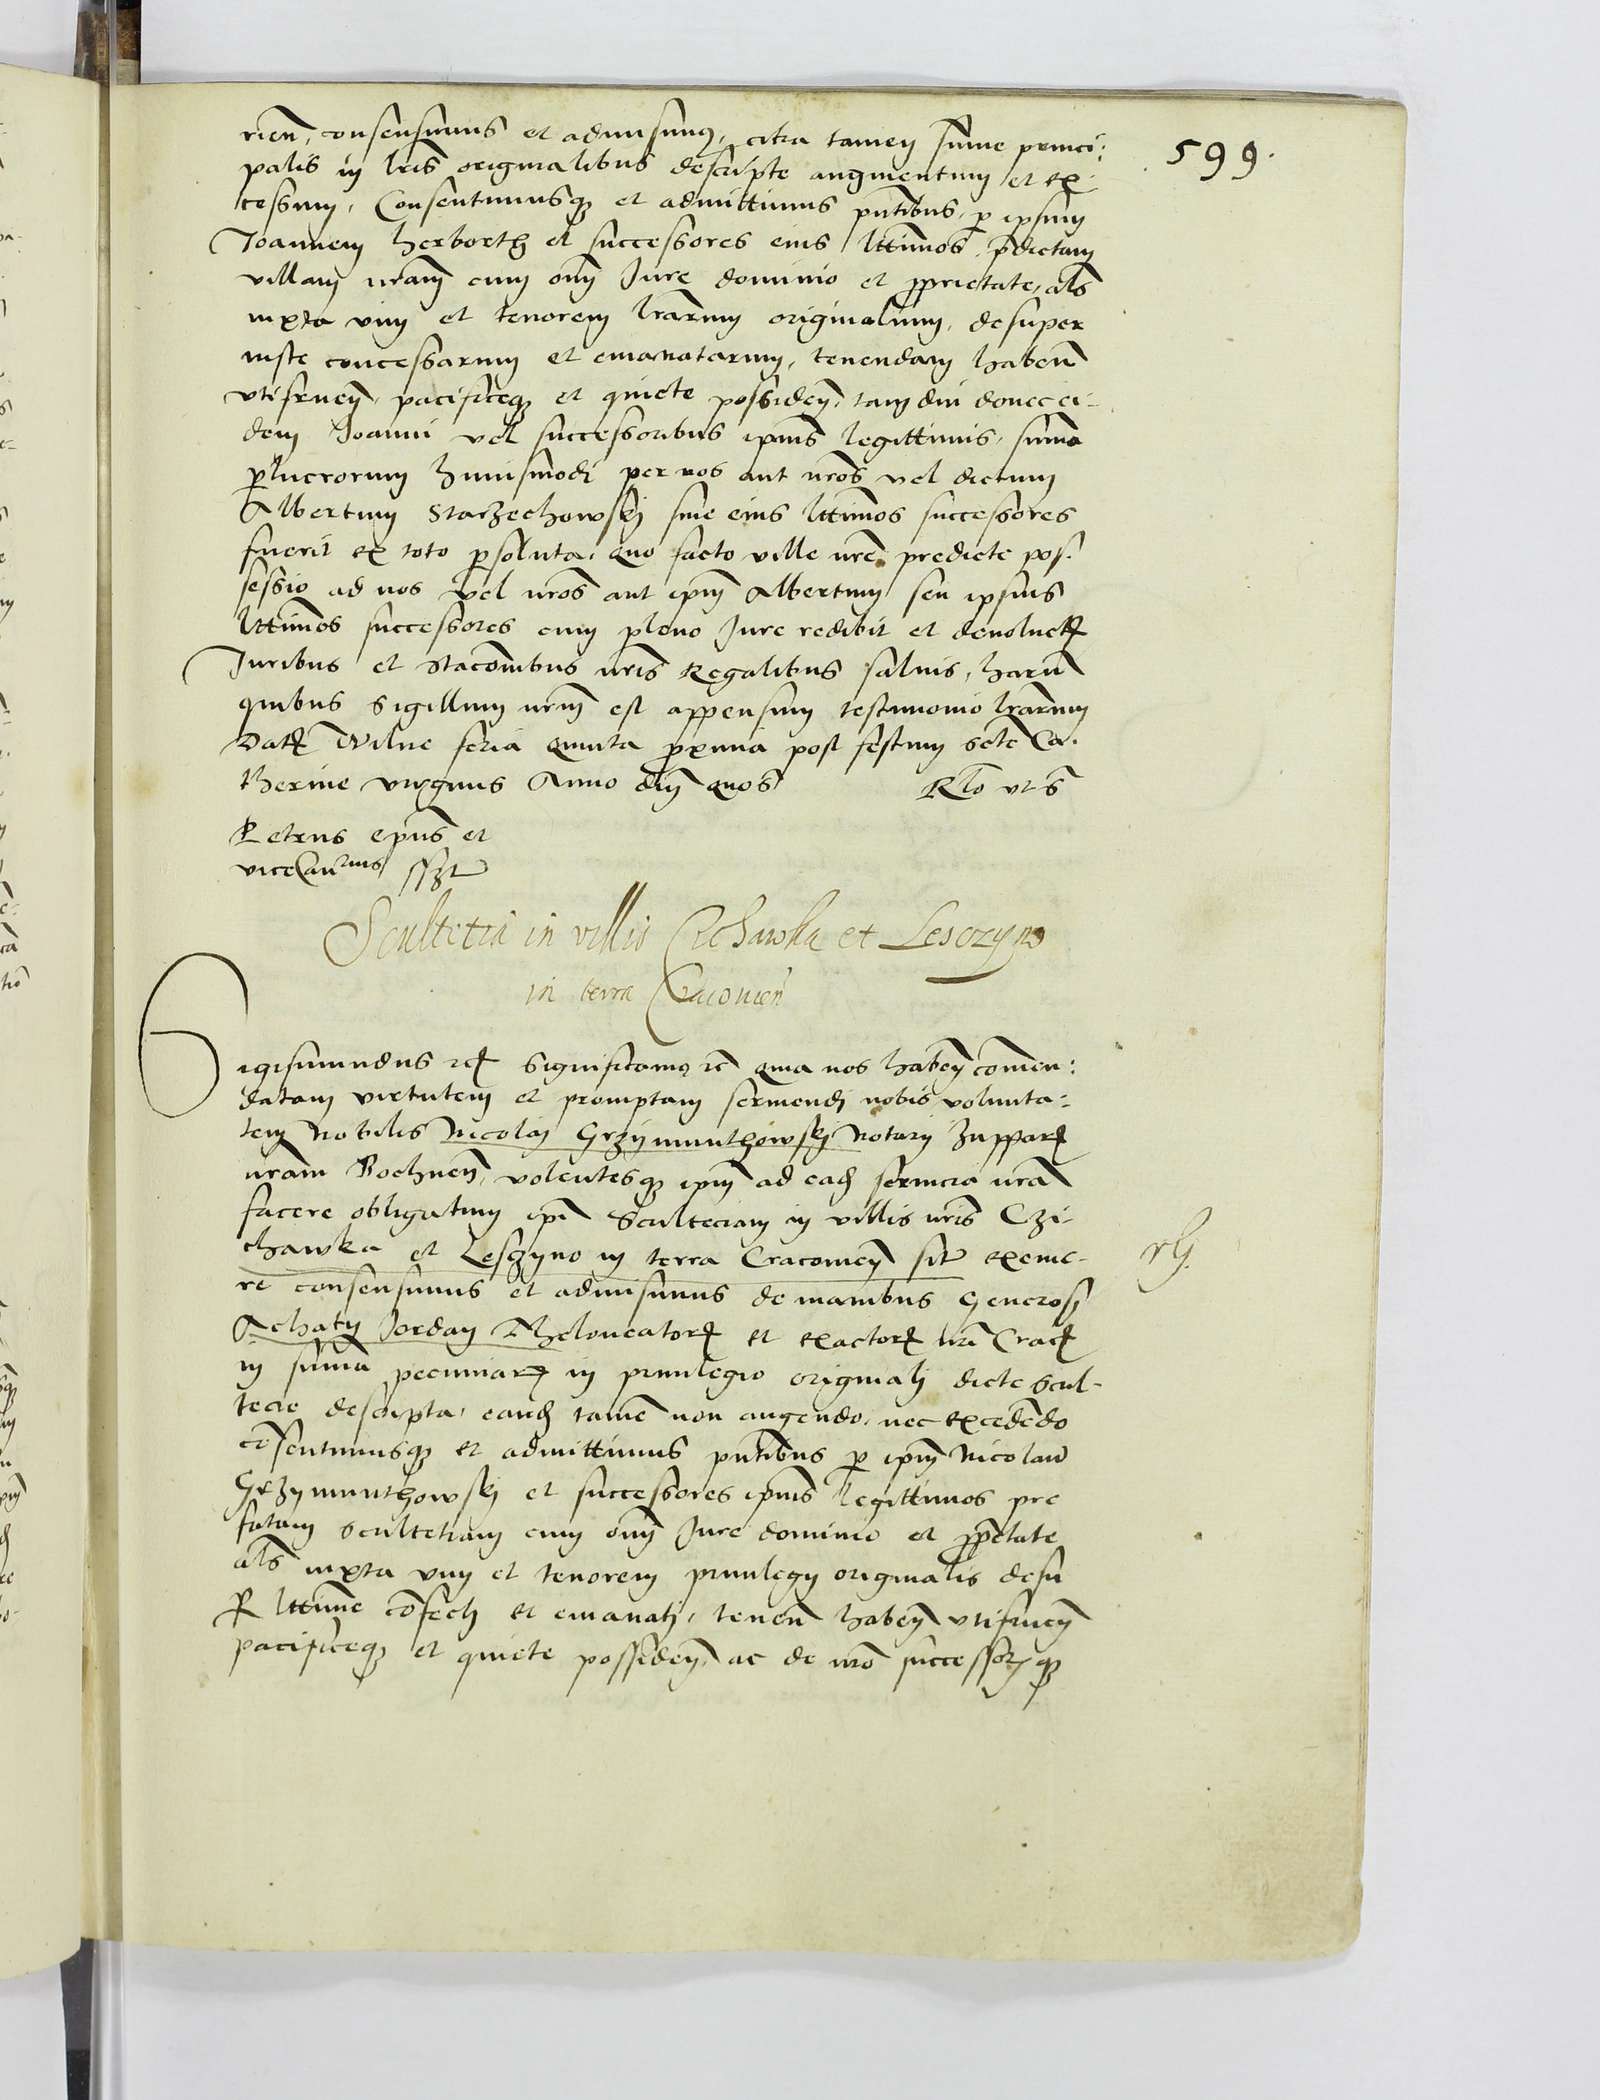 599.
rien̄, consensimus et admisimus, citra tamen sum̄e princi:
palis in lr̄is originalibus descripte augmentum et ex
cessum, Consentimusq̃ et admittimus pn̄tibus, p̄ ipsum
Joannem herborth et successores eius lttimos, p̄dictam
villam nr̄am cum om̄i Jure dominio et p̄prietate, al̄s
iuxta vim et tenorem lr̄arum originalium, desuper
iuste concessarum et emanatarum, tenendam haben̄
vtifruen̄, pacificeq̃ et quiete possiden̄, tam diu donec ei-
dem Joanni vel successoribus ip̄ius legittimis, sum̄a
p̄lucrorum huiusmodi per nos aut nr̄os vel dictum
Albertum Starzechowskj siue eius lttimos successores
fuerit ex toto p̄soluta, quo facto ville nr̄e predicte pos-
sessio ad nos vel nr̄os aut ip̄m Albertum seu ipsius
lttimos successores cum pleno Jure redibit et deuoluetr̃
Juribus et stac̄onibus nr̄is Regalibus saluis, harū
quibus Sigillum nr̄m est appensum testimonio lr̄arum
Datr̃ Wilne feria quinta p̄xima post festum scte Ca-
therine virginis Anno dn̄j quo s̄ Rlo vt s̄
Petrus ep̄us et
viceCanrius sszt
Scultetia in villis Cichawka et Lesczyno
in terra Cracouien̄
Sigismundus rc̃ Significamus rc̄ quia nos haben̄ com̄en:
datam virtutem et promptam seruiendj nobis volunta:
tem Nobilis Nicolaj Grzÿmunthowskj Notarÿ Zuppar̃
nr̄arum Bochnen̄, volentesq̃ ip̄m ad ead̃ seruicia nr̄a
facere obligatum ip̄i Scultetiam in villis nr̄is Czi-
chawka et Lesczyno in terra Cracouien̄ sit̃ exeme-
re consensimus et admisimus de manibus Generosj
Achatÿ Jordan Theloneatorr̃ et exactorr̃ nr̄i Cracr̃
in sum̄a pecuniar̃ in priuilegio originalj dicte Scul-
tecie descripta, eand̃ tamē non augendo, nec excedēdo
cōsentimusq̃ et admittimus pn̄tibus p̄ ip̄m Nicolaū
Grzÿmunthowskj et successores ip̄ius legittimos pre
fatam scultetiam cum om̄i Jure dominio et p̄prietate
al̄s iuxta vim et tenorem priuilegÿ originalis desu
p̄ lttime cōfectj et emanatj, tenen̄ haben̄ vtifruen̄
pacificeq̃ et quiete possiden̄, ac de nr̄o successor̃q̃